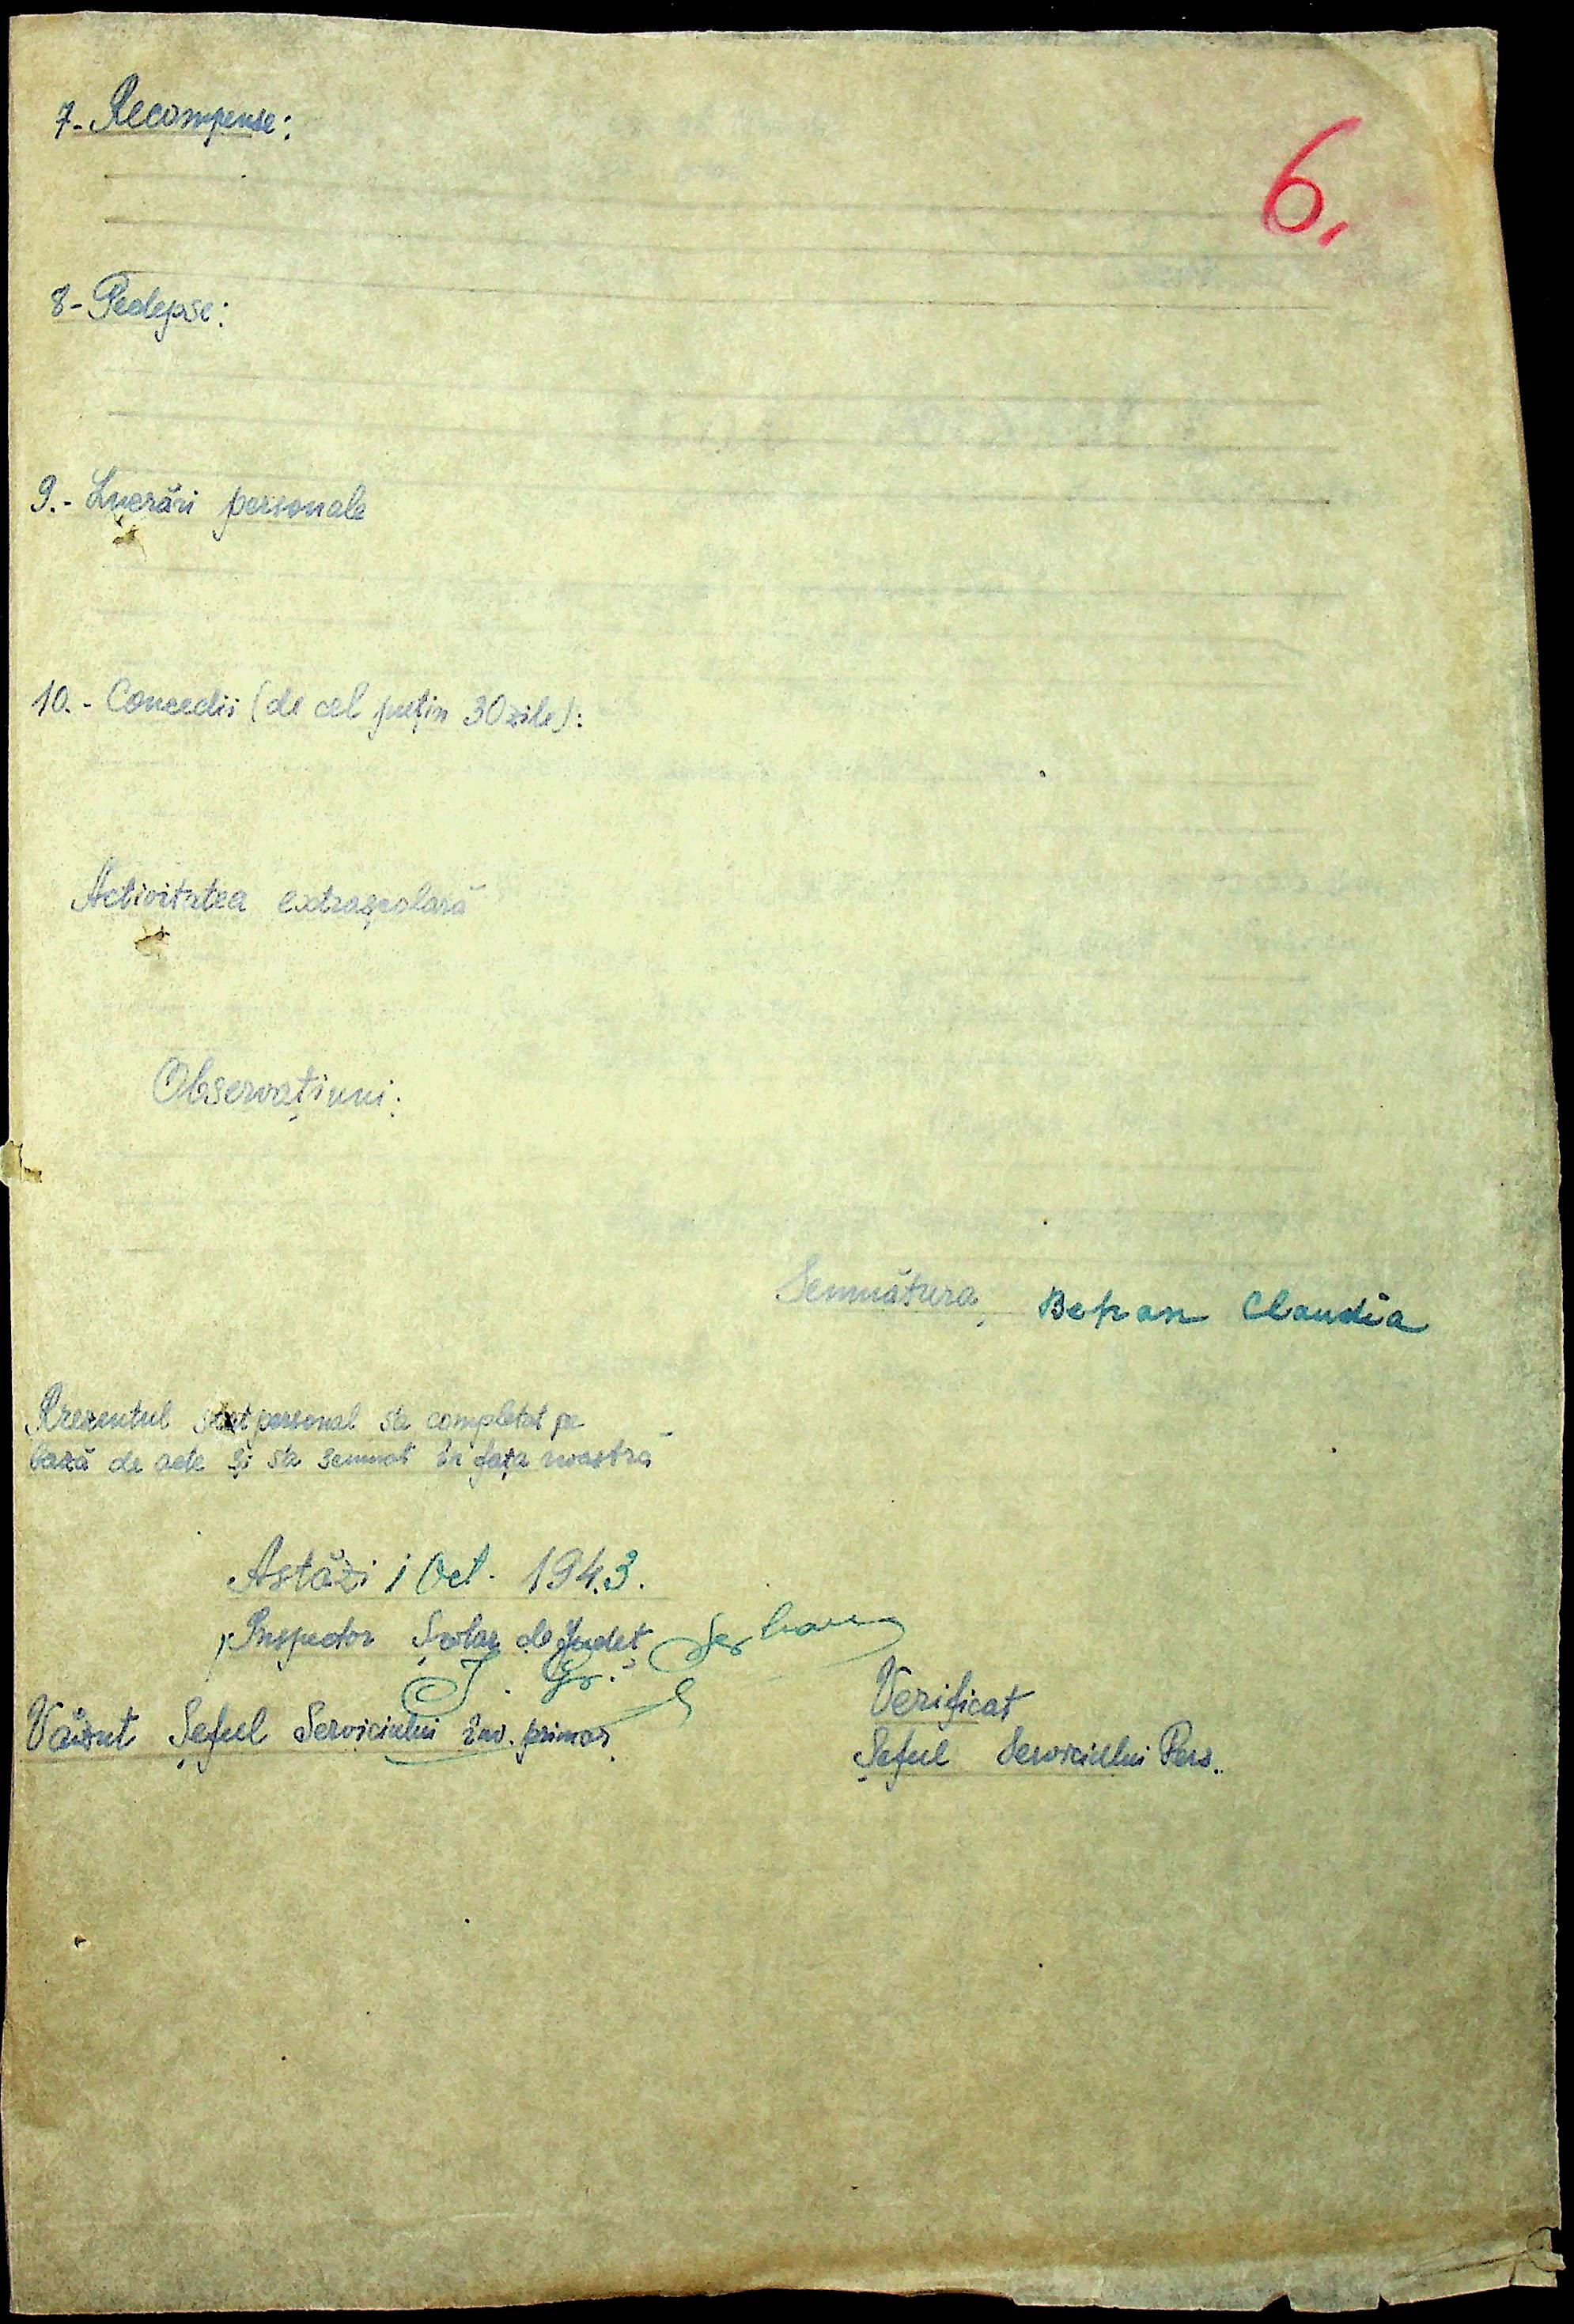 6.
7- Recompense:
8- Pedepse:
9.- Lucrări personale
10.- Concedii (de cel puțin 30 zile):
Activitatea extrașcolară
Observațiuni:
Semnătura, Bepan Claudia
Prezentul stat personal sa completat pe
bază de acte și sa semnat în fața noastră
Astăzi 1 Oct. 1943.
Inspector Școlar de Județ
I. Gr. Șerban
Văzut Șeful Serviciului Înv. primar
Verificat
Șeful Serviciului Pers.